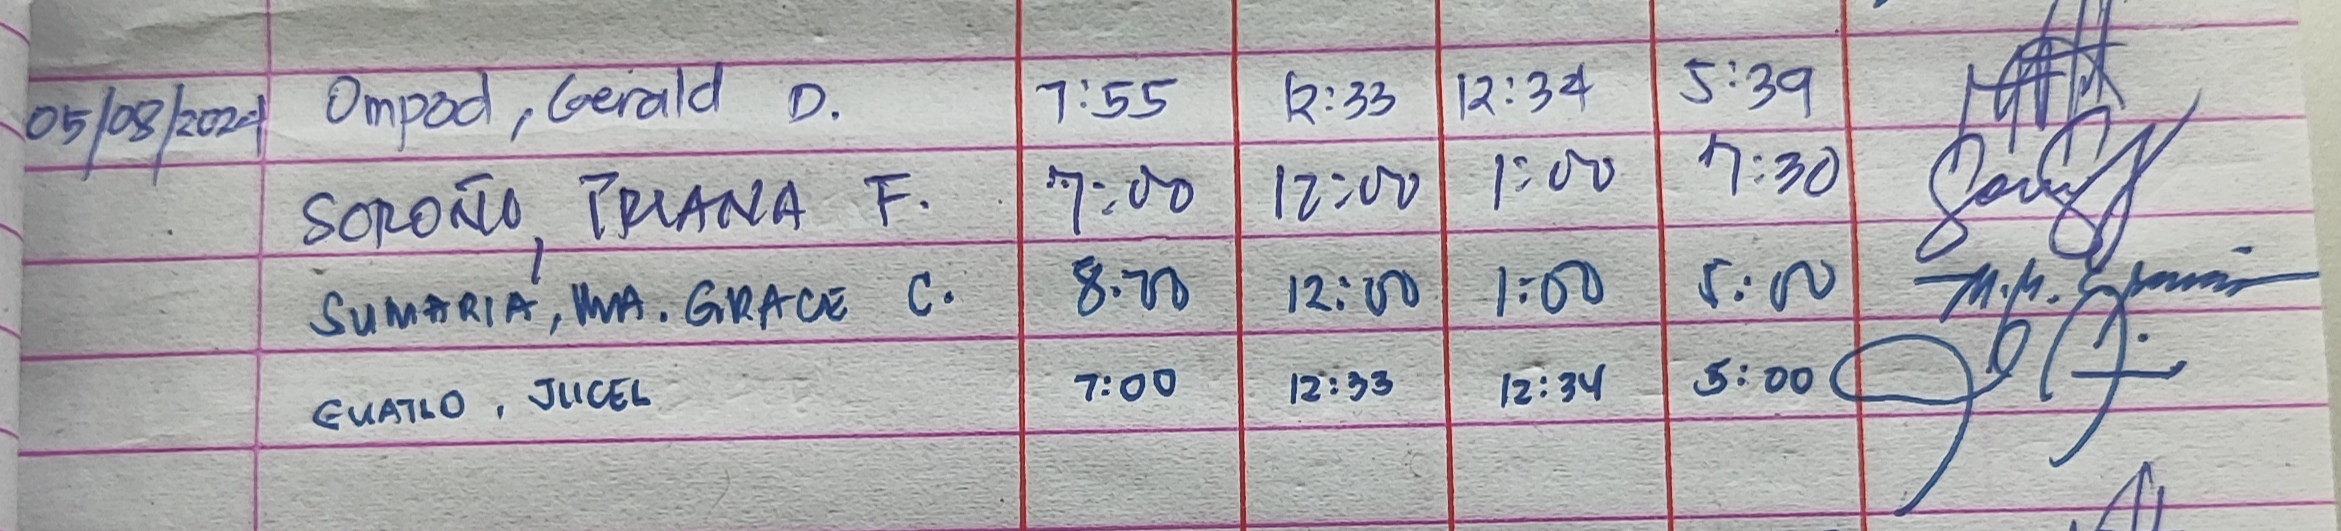 05/08/2024 Ompad, Gerald D. 7:55 12:33 12:34 5:39
SOROÑO, TRIANA F. 7:00 12:00 1:00 7:30
SUMARIA, MA. GRACE C. 8:00 12:00 1:00 5:00
GUATLO, JUCEL 7:00 12:33 12:34 5:00